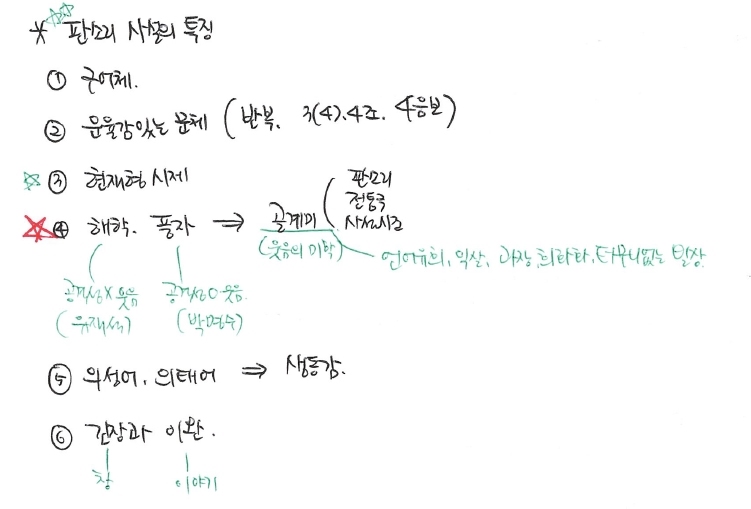 * 판소리 사설의 특징
① 구어체.
② 운율감있는 문체 (반복. 3(4).4조. 4음보)
③ 현재형 시제
④ 해학. 풍자 ⇒ 골계미
판소리
전통극
사설시조
(웃음의 미학)
언어유희, 익살, 과장, 희화화, 터무니없는 발상.
공격성X웃음
(유재석)
공격성O웃음.
(박명수)
⑤ 의성어, 의태어 ⇒ 생동감.
⑥ 긴장과 이완.
창
이야기